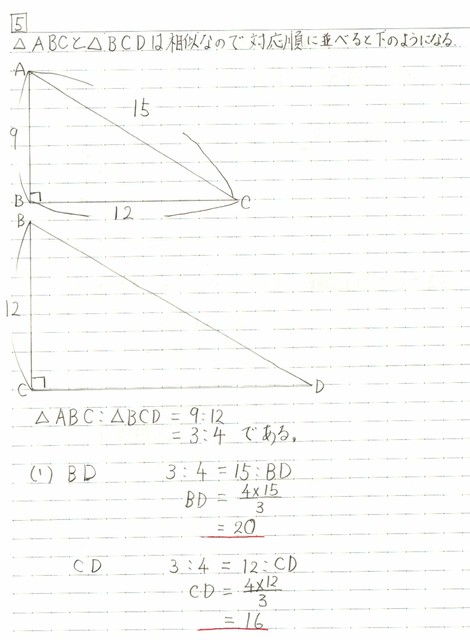 5
△ABCと△BCDは相似なので対応順に並べると下のようになる.
A
15
9
B
C
12
B
12
C
D
△ABC:△BCD = 9:12
= 3:4 である。
(1) BD 3:4 = 15:BD
BD = 4×15/3
= 20
CD 3:4 = 12:CD
CD = 4×12/3
= 16